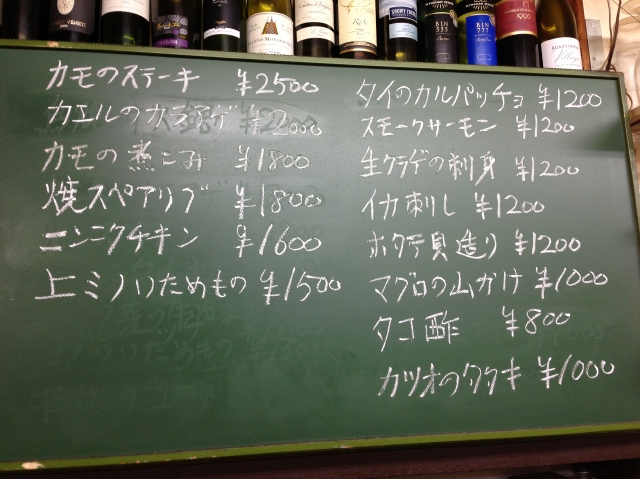 カモのステーキ ¥2500
カエルのカラアゲ ¥2000
カモの煮こみ ¥1800
焼スペアリブ ¥1800
ニンニクチキン ¥1600
上ミノいためもの ¥1500
タイのカルパッチョ ¥1200
スモークサーモン ¥1200
生クラゲの刺身 ¥1200
イカ刺し ¥1200
ホタテ貝造り ¥1200
マグロの山かけ ¥1000
タコ酢 ¥800
カツオのタタキ ¥1000
BIN 555
BIN 777